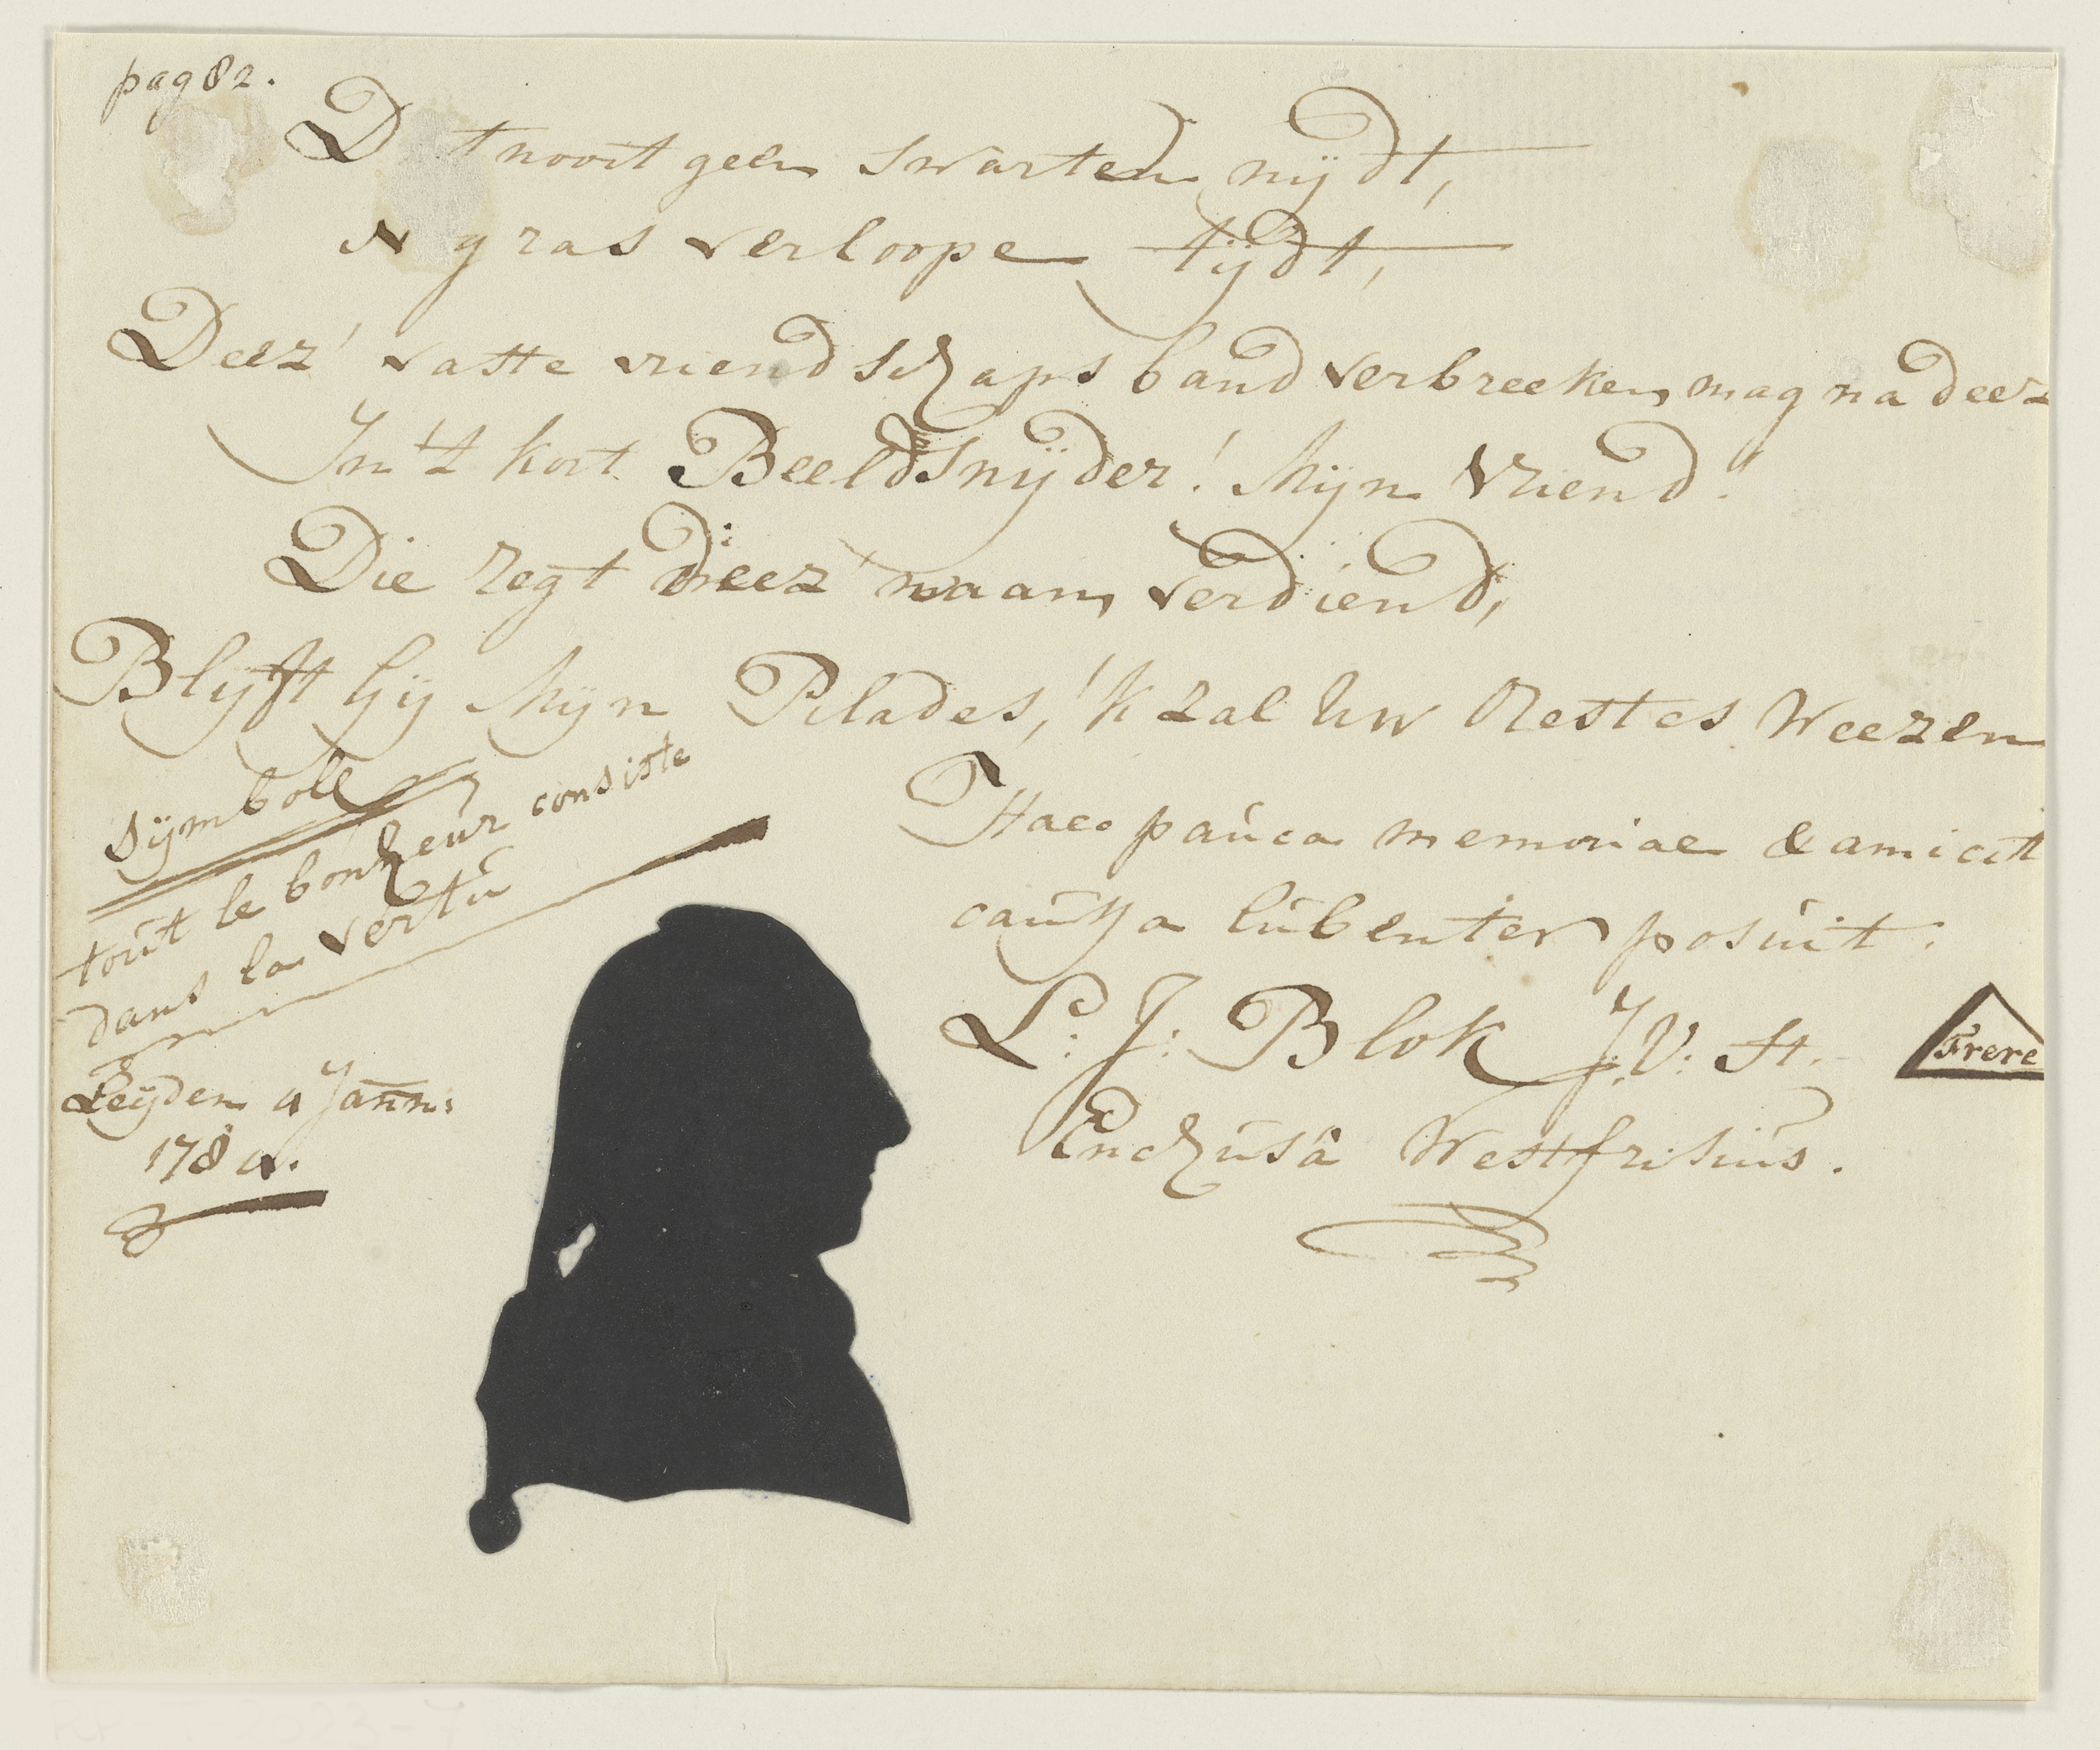 pag 82.
Dat nooit geen swarten nijdt,
N g ras verloope tijdt,
Deez' vaste vriendschaps band verbreeken, mag na deez
In 't kort Beeldsnijder! Mijn Vriend!
Die regt deez' naam verdiend,
Blijft Gij Mijn Pilades, 'k zal Uw Orestes Weezen
Symbole
tout le bonheur consiste
dans la vertu
Leyden 4 Jann:
1784.
Haec pauca memoriae & amicit
caussa lubenter posuit.
L: J: Blok J: V: St.
Frere
Enchusâ Westfrisius.